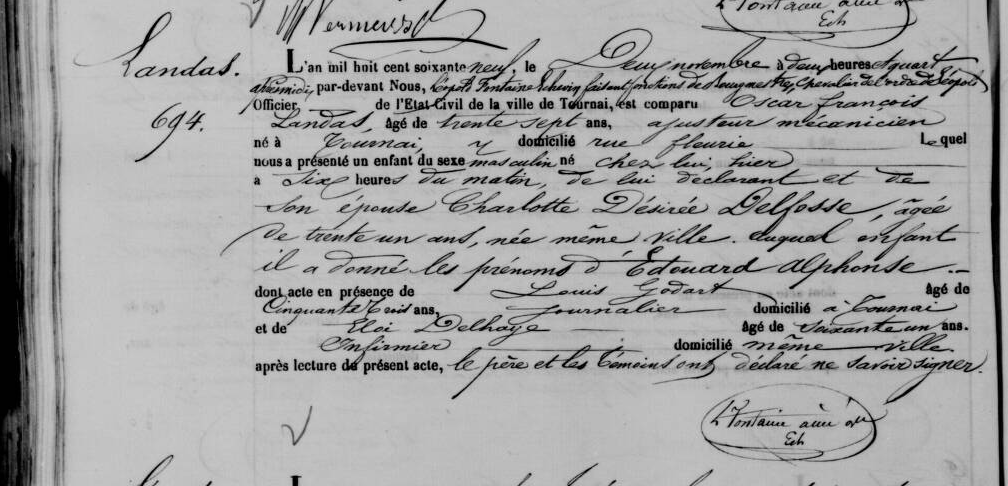 Vermeersch
L Fontaine aîné
Ech
Landas.
694.
L'an mil huit cent soixante neuf, le Deux novembre à deux heures et quart
après midi, par-devant Nous, Léopold Fontaine Echevin faisant fonctions de Bourgmestre, Chevalier de l'ordre de Léopold
Officier de l'Etat-Civil de la ville de Tournai, est comparu Oscar François
Landas, âgé de trente sept ans, ajusteur mécanicien
né à Tournai, y domicilié rue fleurie Lequel
nous a présenté un enfant du sexe masculin né chez lui, hier
a Six heures du matin, de lui déclarant et de
son épouse Charlotte Désirée Delfosse, âgée
de trente un ans, née même ville. auquel enfant
il a donné les prénoms d'Edouard Alphonse.
dont acte en présence de Louis Godart âgé de
Cinquante trois ans, journalier domicilié à Tournai
et de Eloi Delhaye âgé de soixante un ans.
Infirmier domicilié même ville
après lecture du présent acte, le père et les témoins ont déclaré ne savoir signer.
L Fontaine aîné
Ech